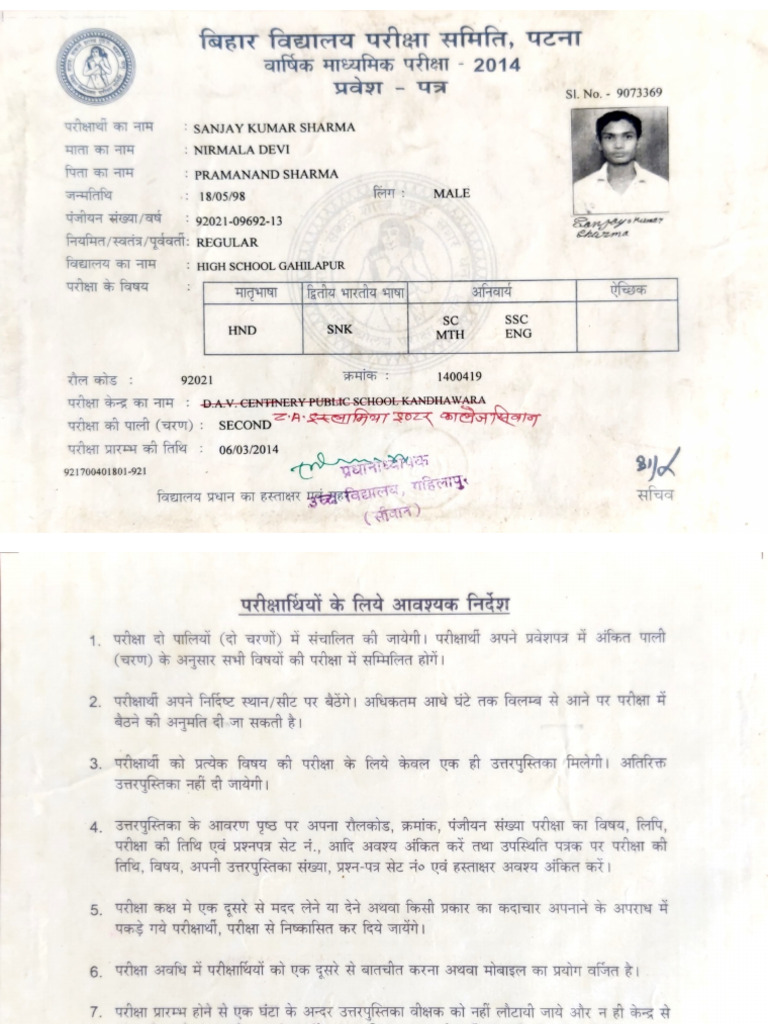 बिहार विद्यालय परीक्षा समिति, पटना
वार्षिक माध्यमिक परीक्षा - 2014
प्रवेश - पत्र
Sl. No. - 9073369
परीक्षार्थी का नाम : SANJAY KUMAR SHARMA
माता का नाम : NIRMALA DEVI
पिता का नाम : PRAMANAND SHARMA
जन्मतिथि : 18/05/98 लिंग : MALE
पंजीयन संख्या/वर्ष : 92021-09692-13
Sanjay Kumar
Sharma
नियमित/स्वतंत्र/पूर्ववर्ती: REGULAR
विद्यालय का नाम : HIGH SCHOOL GAHILAPUR
परीक्षा के विषय :
मातृभाषा द्वितीय भारतीय भाषा अनिवार्य ऐच्छिक
HND SNK SC SSC
MTH ENG
रौल कोड : 92021 क्रमांक : 1400419
परीक्षा केन्द्र का नाम : D.A.V. CENTINERY PUBLIC SCHOOL KANDHAWARA
Z.A. इस्लामिया इण्टर कालेज सिवान
परीक्षा की पाली (चरण) : SECOND
परीक्षा प्रारम्भ की तिथि : 06/03/2014
921700401801-921
प्रधानाध्यापक
विद्यालय प्रधान का हस्ताक्षर सचिव
उच्च विद्यालय, गहिलापुर
(सीवान)
परीक्षार्थियों के लिये आवश्यक निर्देश
1. परीक्षा दो पालियों (दो चरणों) में संचालित की जायेगी। परीक्षार्थी अपने प्रवेशपत्र में अंकित पाली
(चरण) के अनुसार सभी विषयों की परीक्षा में सम्मिलित होगें।
2. परीक्षार्थी अपने निर्दिष्ट स्थान/सीट पर बैठेंगे। अधिकतम आधे घंटे तक विलम्ब से आने पर परीक्षा में
बैठने की अनुमति दी जा सकती है।
3. परीक्षार्थी को प्रत्येक विषय की परीक्षा के लिये केवल एक ही उत्तरपुस्तिका मिलेगी। अतिरिक्त
उत्तरपुस्तिका नहीं दी जायेगी।
4. उत्तरपुस्तिका के आवरण पृष्ठ पर अपना रौलकोड, क्रमांक, पंजीयन संख्या परीक्षा का विषय, लिपि,
परीक्षा की तिथि एवं प्रश्नपत्र सेट नं., आदि अवश्य अंकित करें तथा उपस्थिति पत्रक पर परीक्षा की
तिथि, विषय, अपनी उत्तरपुस्तिका संख्या, प्रश्न-पत्र सेट नं० एवं हस्ताक्षर अवश्य अंकित करें।
5. परीक्षा कक्ष मे एक दूसरे से मदद लेने या देने अथवा किसी प्रकार का कदाचार अपनाने के अपराध में
पकड़े गये परीक्षार्थी, परीक्षा से निष्कासित कर दिये जायेंगे।
6. परीक्षा अवधि में परीक्षार्थियों को एक दूसरे से बातचीत करना अथवा मोबाइल का प्रयोग वर्जित है।
7. परीक्षा प्रारम्भ होने से एक घंटा के अन्दर उत्तरपुस्तिका वीक्षक को नहीं लौटायी जाये और न ही केन्द्र से